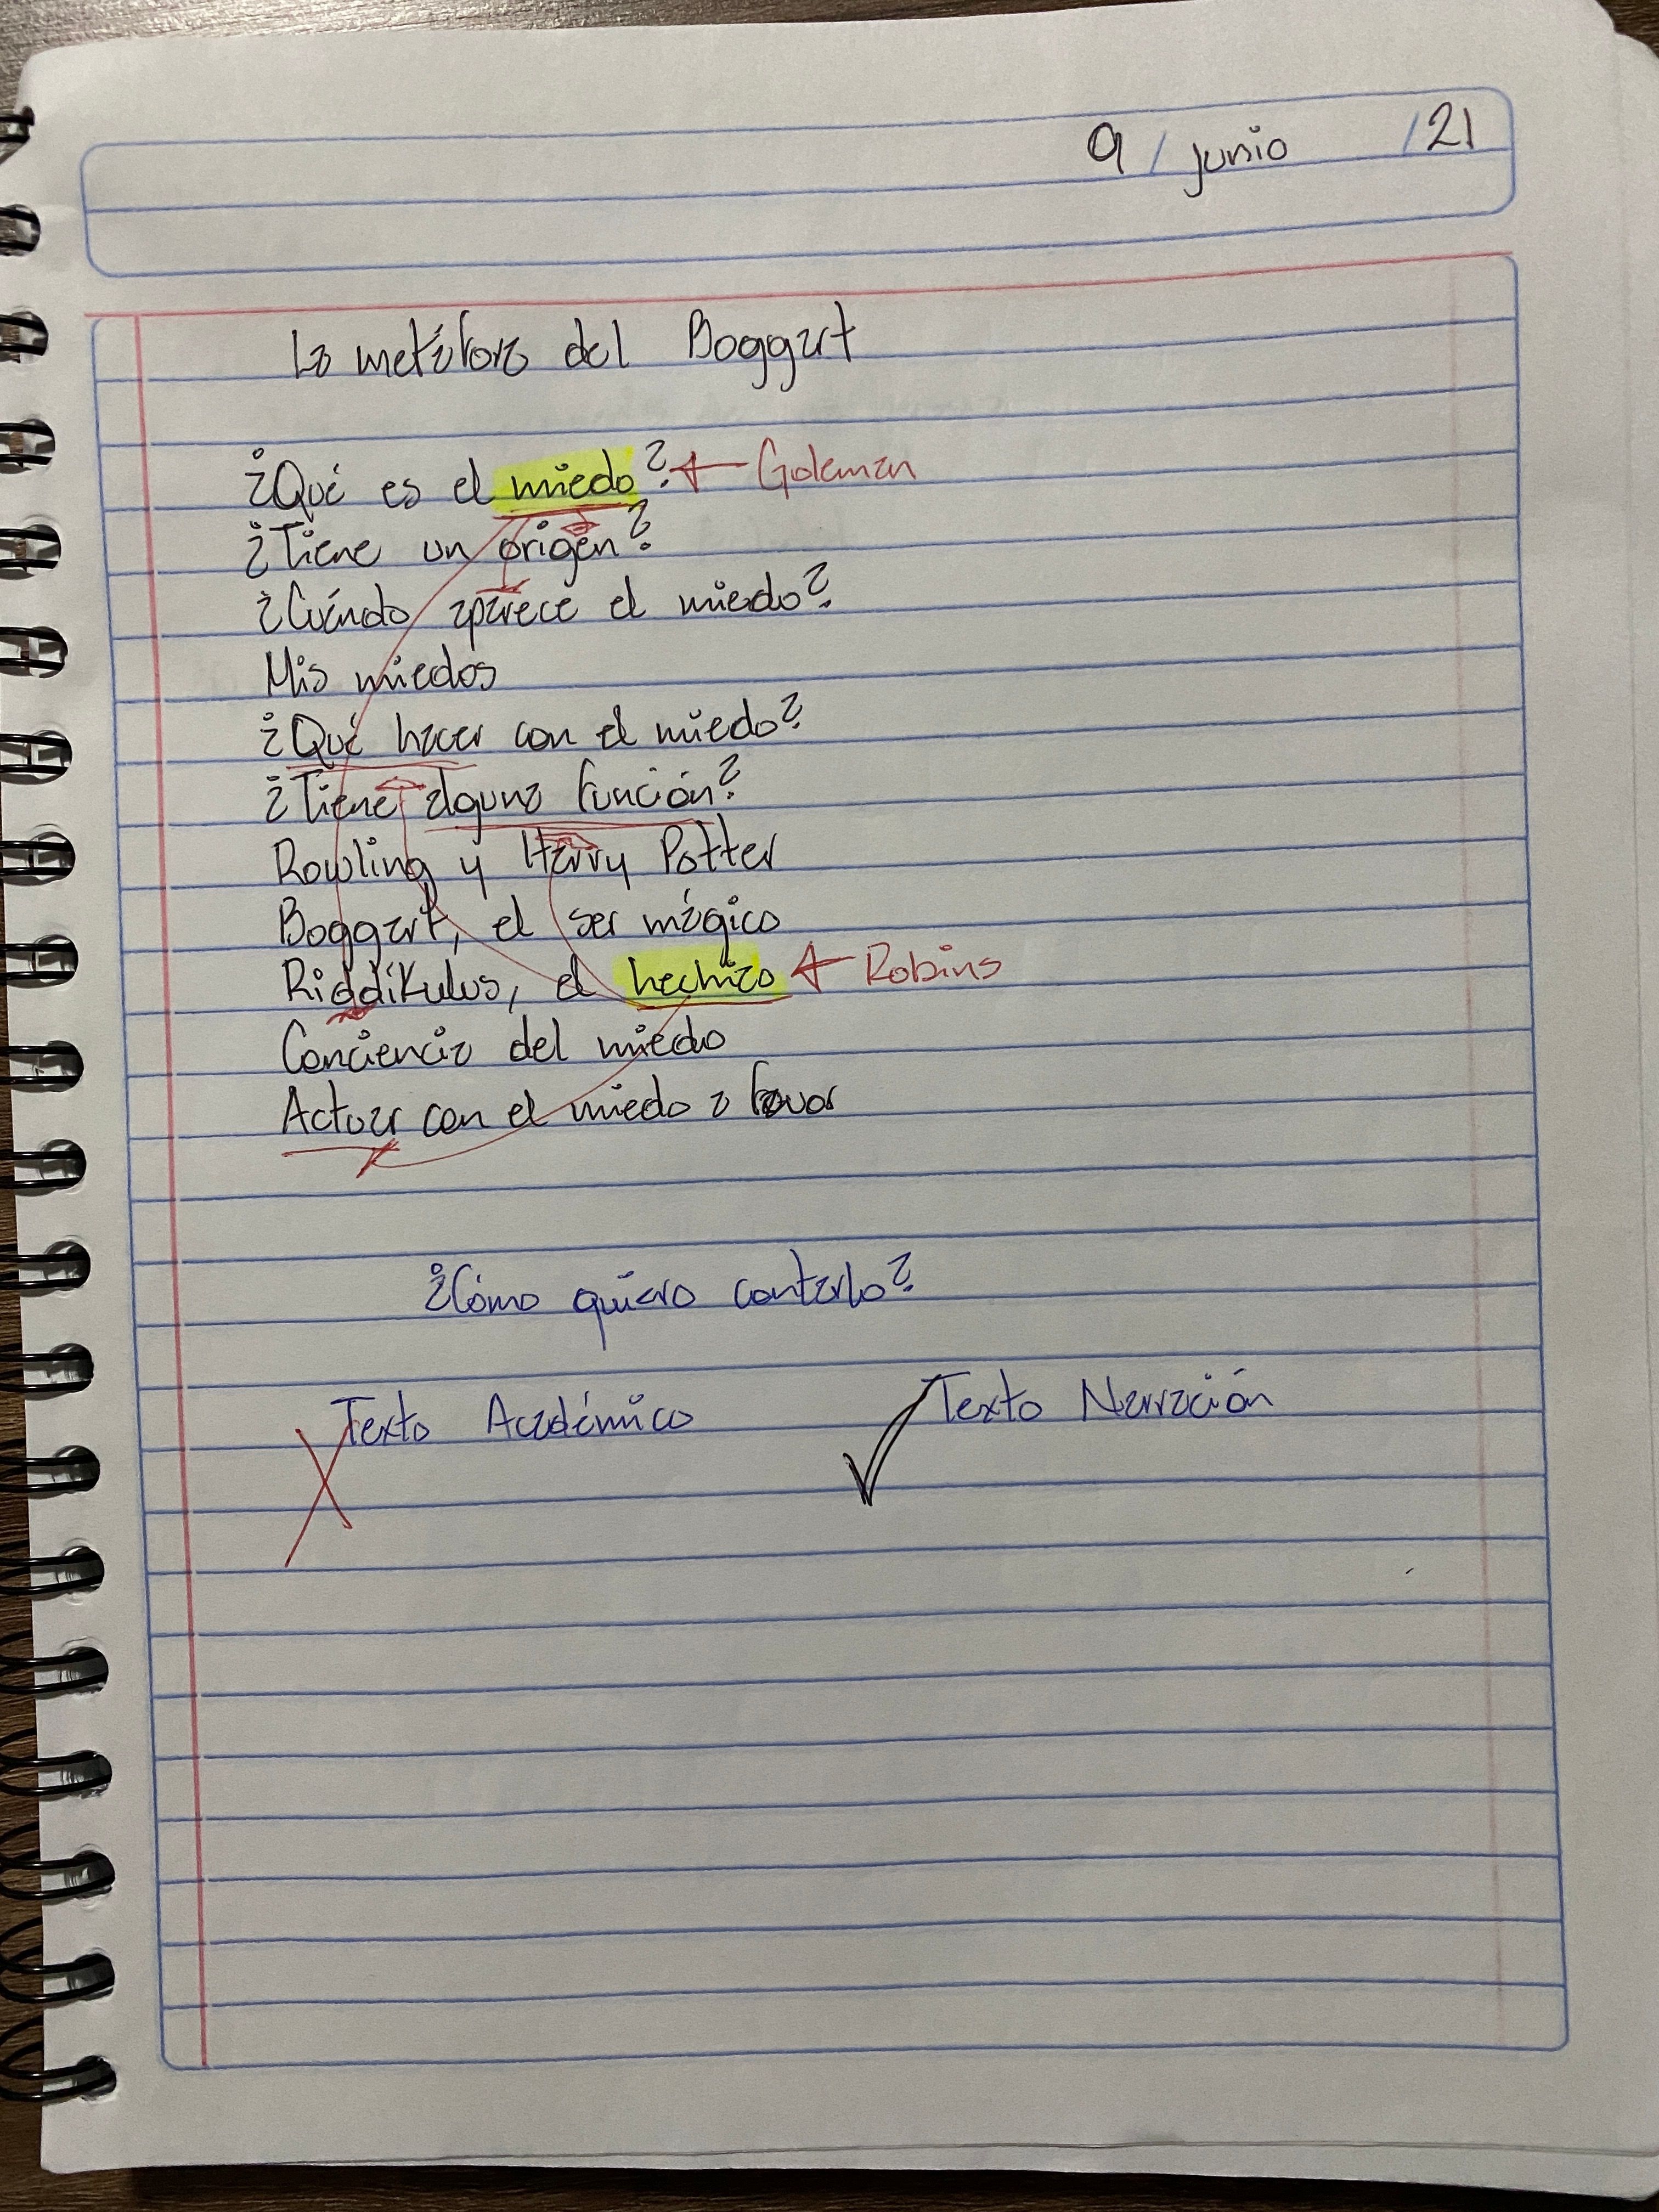 9 / junio / 21
La metáfora del Boggart
¿Qué es el miedo? ← Goleman
¿Tiene un origen?
¿Cuándo aparece el miedo?
Mis miedos
¿Qué hacer con el miedo?
¿Tiene alguna función?
Rowling y Harry Potter
Boggart, el ser mágico
Riddíkulus, el hechizo ← Robins
Conciencia del miedo
Actuar con el miedo a favor
¿Cómo quiero contarlo?
Texto Académico Texto Narración